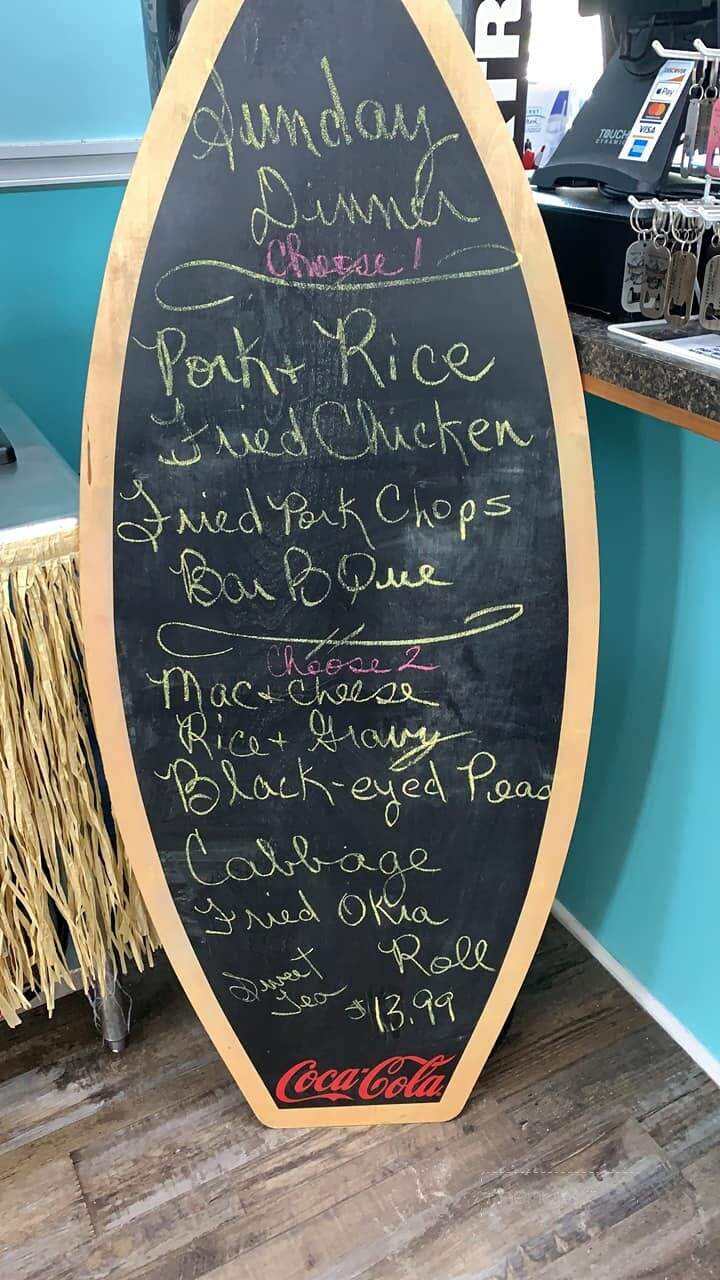 Sunday
Dinner
Choose 1
Pork + Rice
Fried Chicken
Fried Pork Chops
Bar B Que
Choose 2
Mac + Cheese
Rice + Gravy
Black-eyed Peas
Cabbage
Fried Okra
Roll
Sweet
Tea
$13.99
Coca-Cola
TOUCH
DYNAMIC
DISCOVER
Pay
MasterCard
VISA